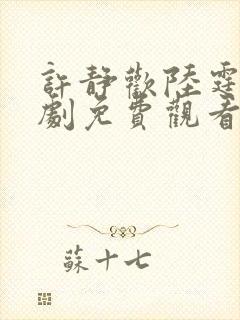 許靜歡陸霆
劇免費觀看
蘇十七